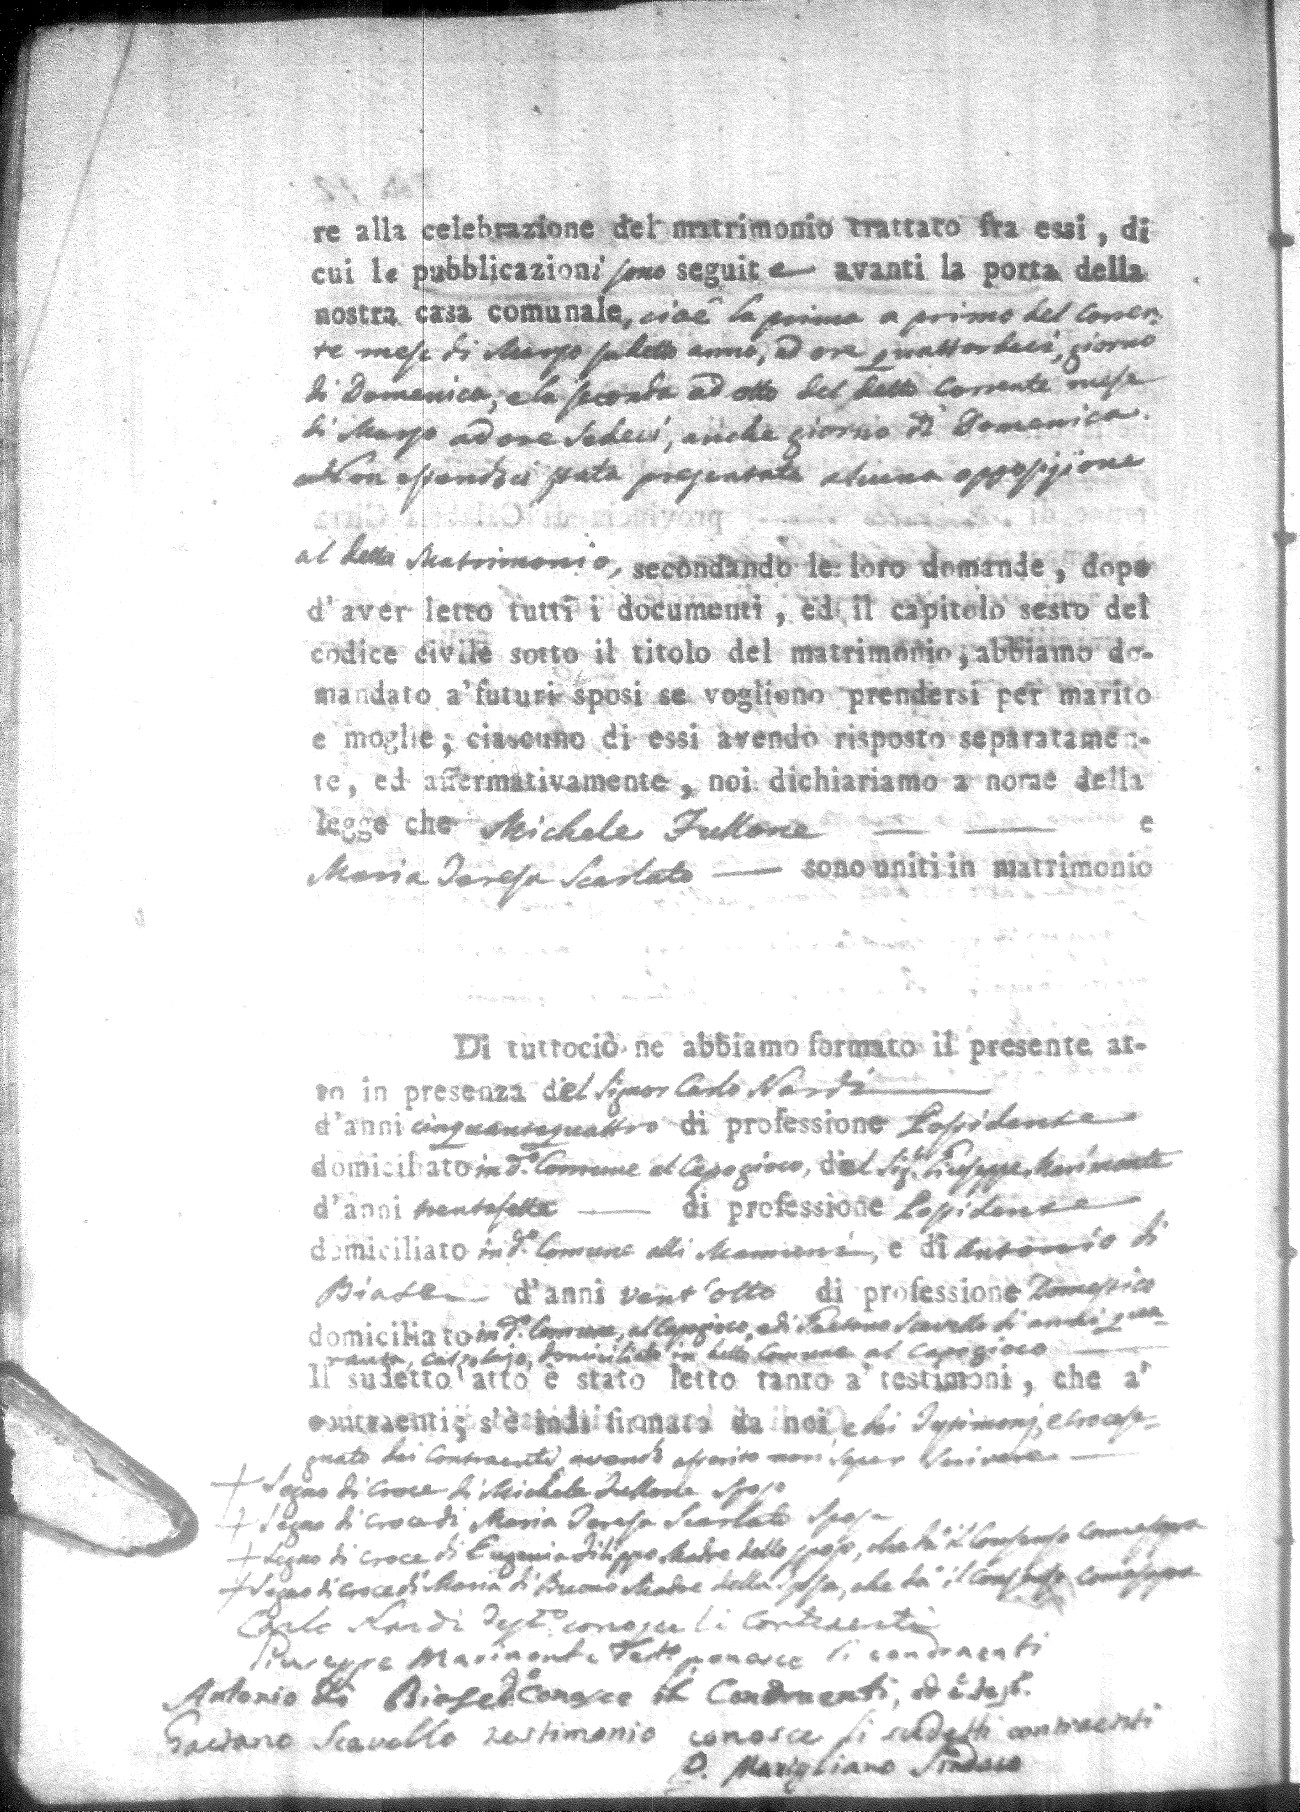 re alla celebrazione del matrimonio trattato fra essi, di
cui le pubblicazioni sono seguite avanti la porta della
nostra casa comunale, cioè la prima a primo del corren-
te mese di Marzo sudetto anno, ad ore quattordeci, giorno
di Domenica, e la seconda ad otto del detto corrente mese
di Marzo ad ore sedeci, anche giorno di Domenica.
Non essendoci stata presentata alcuna opposizione
al detto Matrimonio, secondando le loro domande, dopo
d'aver letto tutti i documenti, ed il capitolo sesto del
codice civile sotto il titolo del matrimonio, abbiamo do-
mandato a' futuri sposi se vogliono prendersi per marito
e moglie; ciascuno di essi avendo risposto separatamen-
te, ed affermativamente, noi dichiariamo a nome della
legge che Michele Fullone e
Maria Teresa Scarlato sono uniti in matrimonio
Di tuttociò ne abbiamo formato il presente at-
to in presenza del Signor Carlo Nardi
d'anni cinquantaquattro di professione Possidente
domiciliato in d.º Comune al Capogioco, del Sig.r Giuseppe Marimonte
d'anni trentasette di professione Possidente
domiciliato in d.º Comune alli, e di Antonio di
Biase d'anni vent'otto di professione Domestico
domiciliato in d.º Comune, al Capogioco, e di Gaetano Scavello di anni qua-
ranta, calzolajo, domiciliato in detto Comune al Capogioco
Il sudetto atto è stato letto tanto a' testimoni, che a'
contraenti; s'è indi firmato da noi, e dai Testimonj, e crocese-
gnato dai Contraenti, avendo asserito non saper scrivere
+ Segno di croce di Michele Fullone sposo
+ Segno di croce di Maria Teresa Scarlato Sposa
+ Segno di croce di Eugenia Filippo Madre dello sposo, che dà il Consenso come sopra
+ Segno di croce di Maria di Buono Madre della sposa, che dà il Consenso come sopra
Carlo Nardi Test.º conosce li contraenti
Giuseppe Marimonte Test.º conosce li contraenti
Antonio di Biase Conosce il Contraenti, ed è test.º
Gaetano Scavello testimonio conosce li sudetti contraenti
D. Marigliano Sindaco